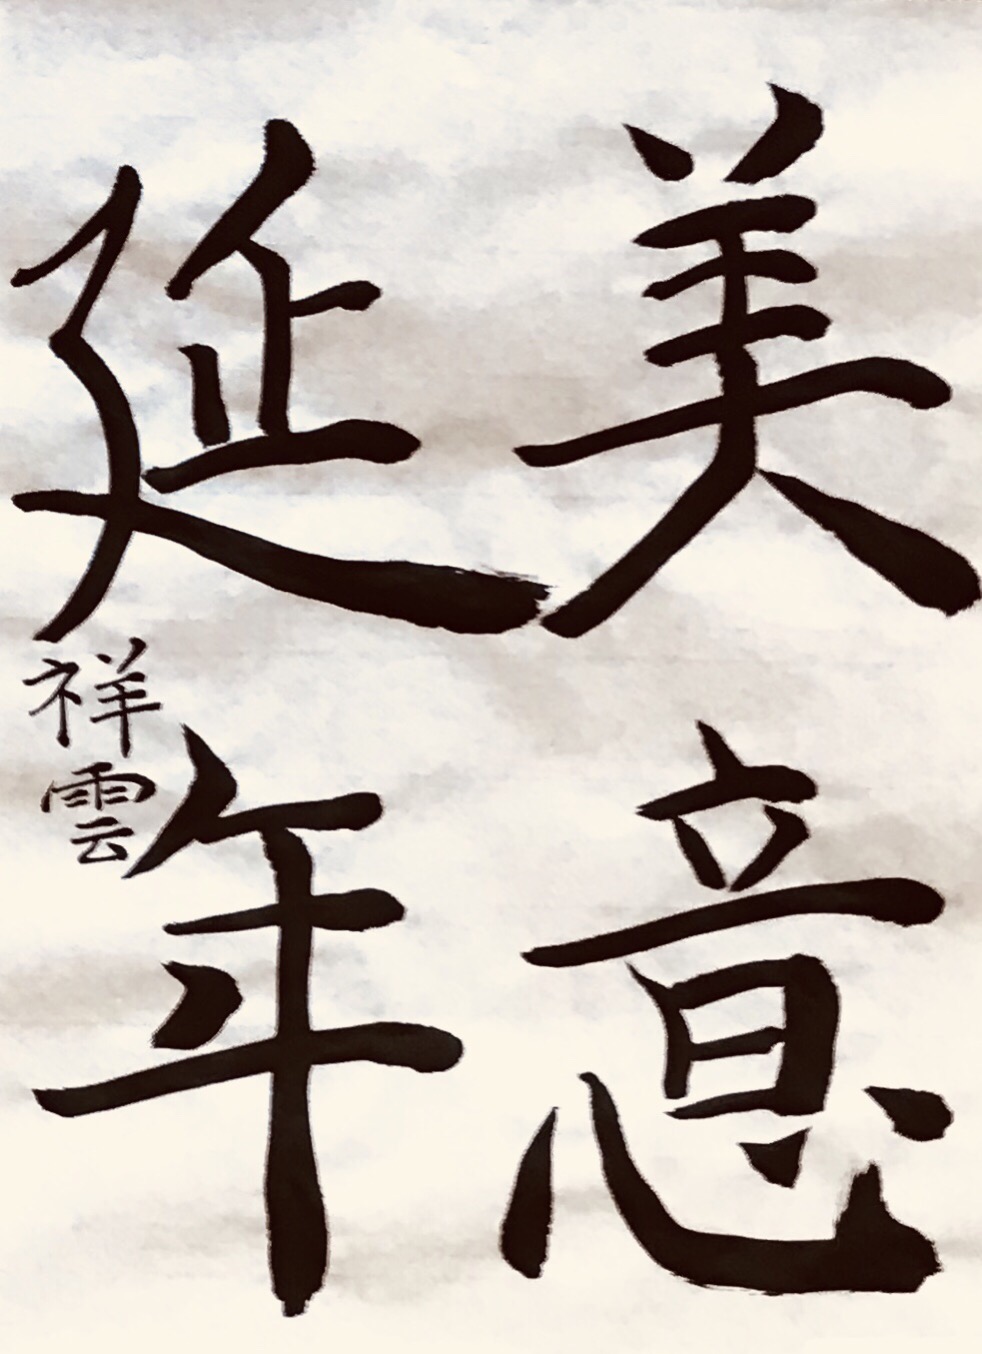 美意
延年
祥雲